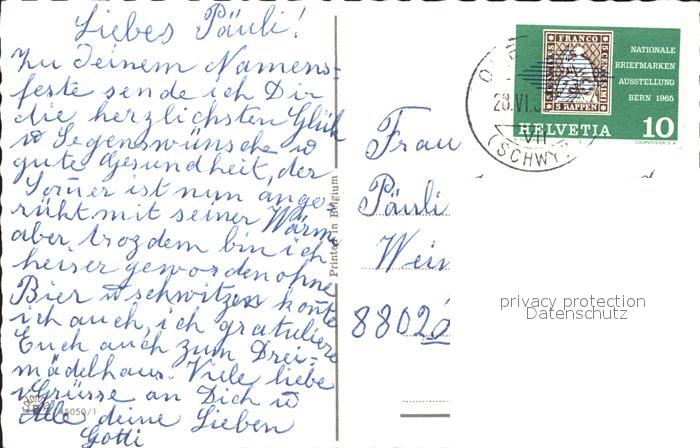 Liebes Päuli!
Zu Deinem Namens=
feste sende ich Dir
die herzlichsten Glück
u Segenswünsche u
gute Gesundheit, der
Somer ist nun ange
rükt mit seiner Wärme
aber trozdem bin ich
heiser geworden ohne
Bier u schwitzen konte
ich auch, ich gratuliere
Euch auch zum Drei=
mädelhaus. Viele liebe
Grüsse an Dich u
Alle deine Lieben
Gotti
45050/1
Printed in Belgium
Frau
Päuli
Wein
8802
NATIONALE
BRIEFMARKEN
AUSSTELLUNG
BERN 1965
FRANCO
5 RAPPEN
HELVETIA 10
COURVOISIER S.A.
28.VI.
VII
(SCHWYZ
privacy protection
Datenschutz